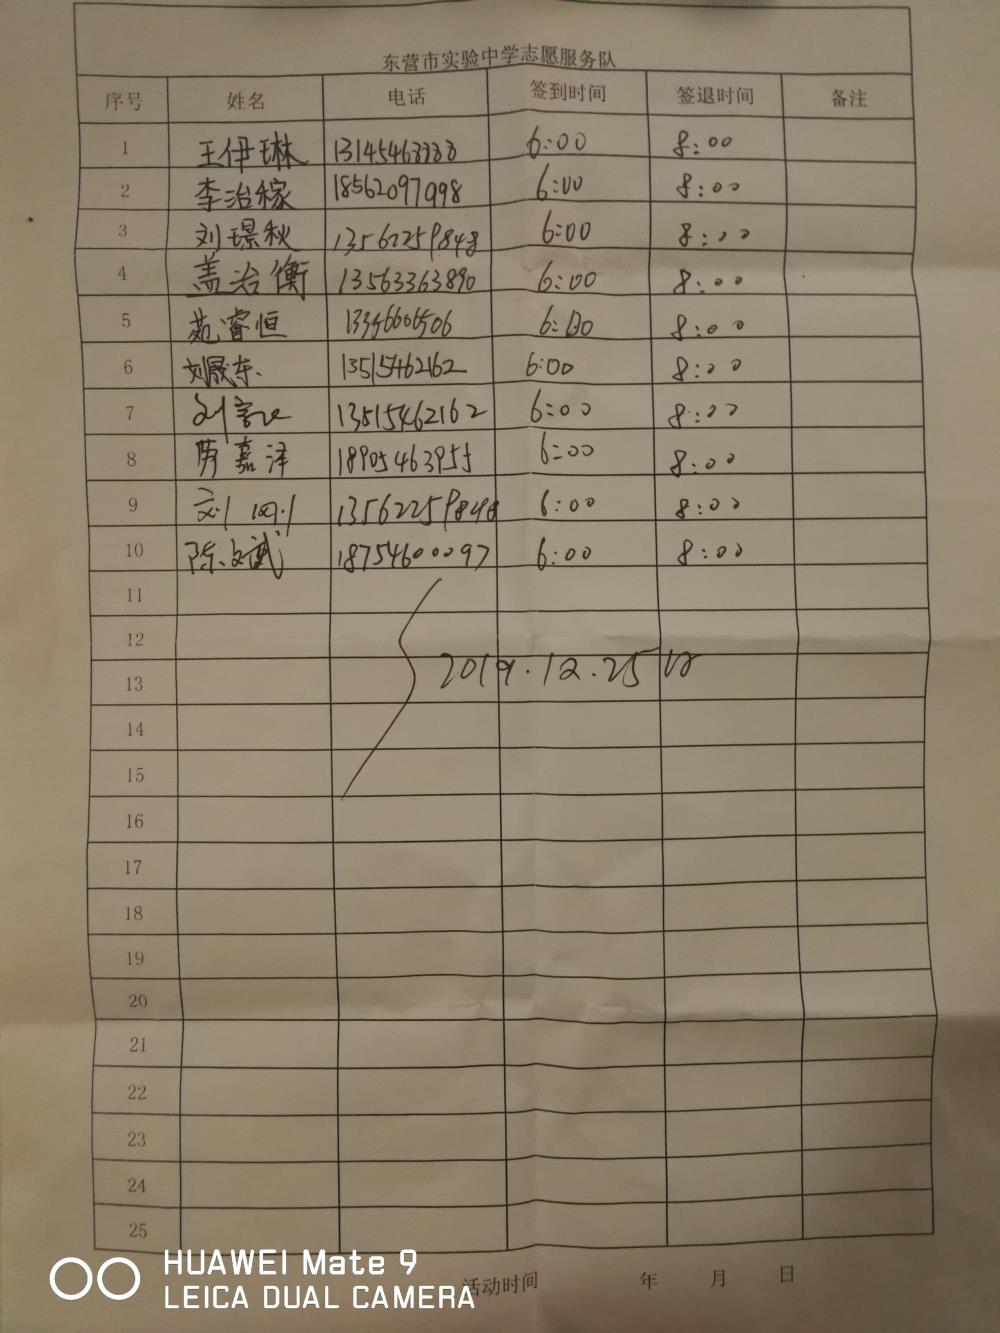 东营市实验中学志愿服务队
序号 姓名 电话 签到时间 签退时间 备注
1 王伊琳 13145468888 6:00 8:00
2 李治稼 18562097998 6:00 8:00
3 刘璟秋 13562259848 6:00 8:00
4 盖治衡 13563363890 6:00 8:00
5 苑睿恒 6:00 8:00
6 刘晟东 13515462162 6:00 8:00
7 刘 13515462162 6:00 8:00
8 嘉泽 18905463955 6:00 8:00
9 刘 13562259848 6:00 8:00
10 陈文武 18754600097 6:00 8:00
11
12
2019.12.25
13
14
15
16
17
18
19
20
21
22
23
24
25
活动时间 年 月 日
HUAWEI Mate 9
LEICA DUAL CAMERA